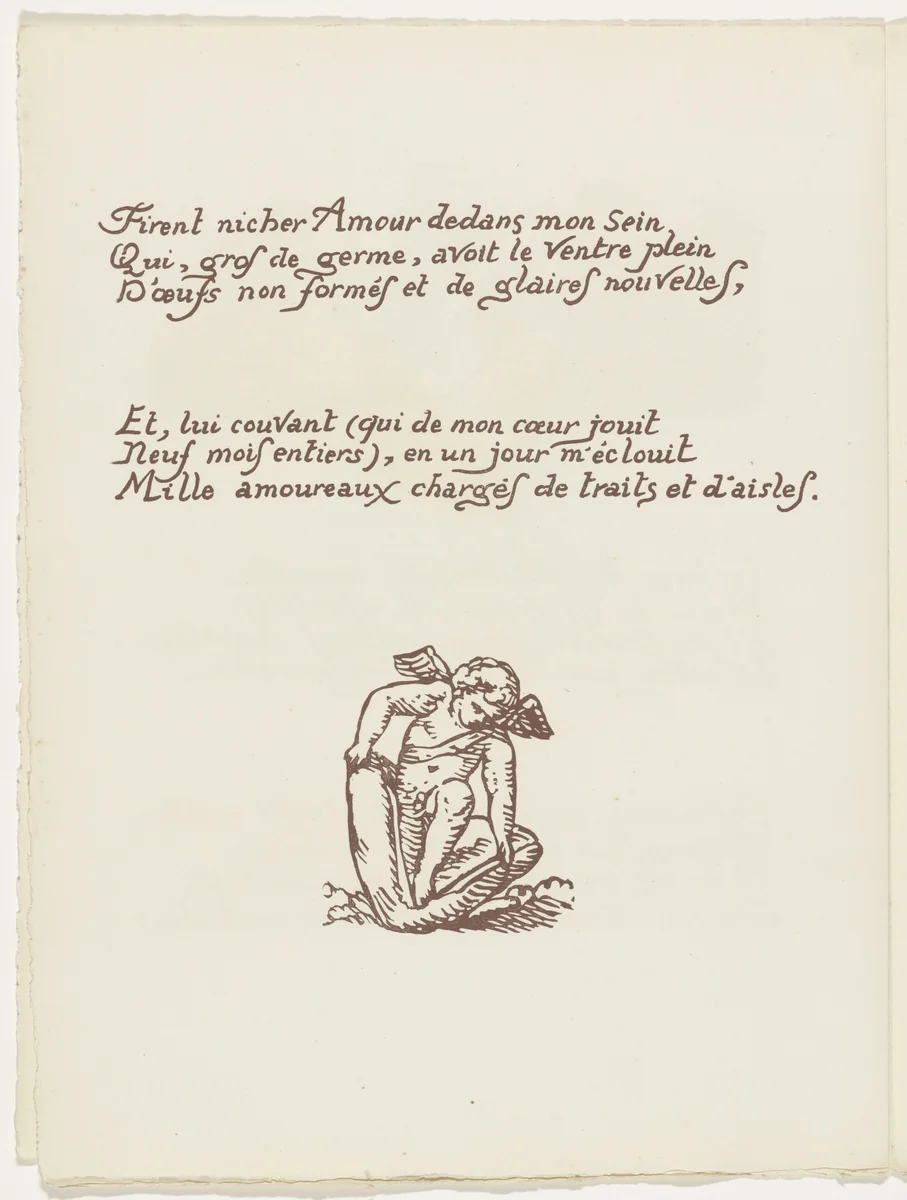 Firent nicher Amour dedans mon Sein,
Qui, gros de germe, avoit le Ventre plein
D'œufs non formés et de glaires nouvelles,
Et, lui couvant (qui de mon cœur jouit
Neuf mois entiers), en un jour m'éclouit
Mille amoureaux chargés de traits et d'aisles.